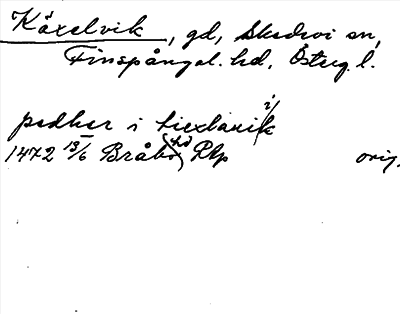 Käxelvik, gd, Skedevi sn,
Finspångal. hd, Östergl.
pedher i kiexlauik
1472 13/6 Bråbo hd Rhp orig.